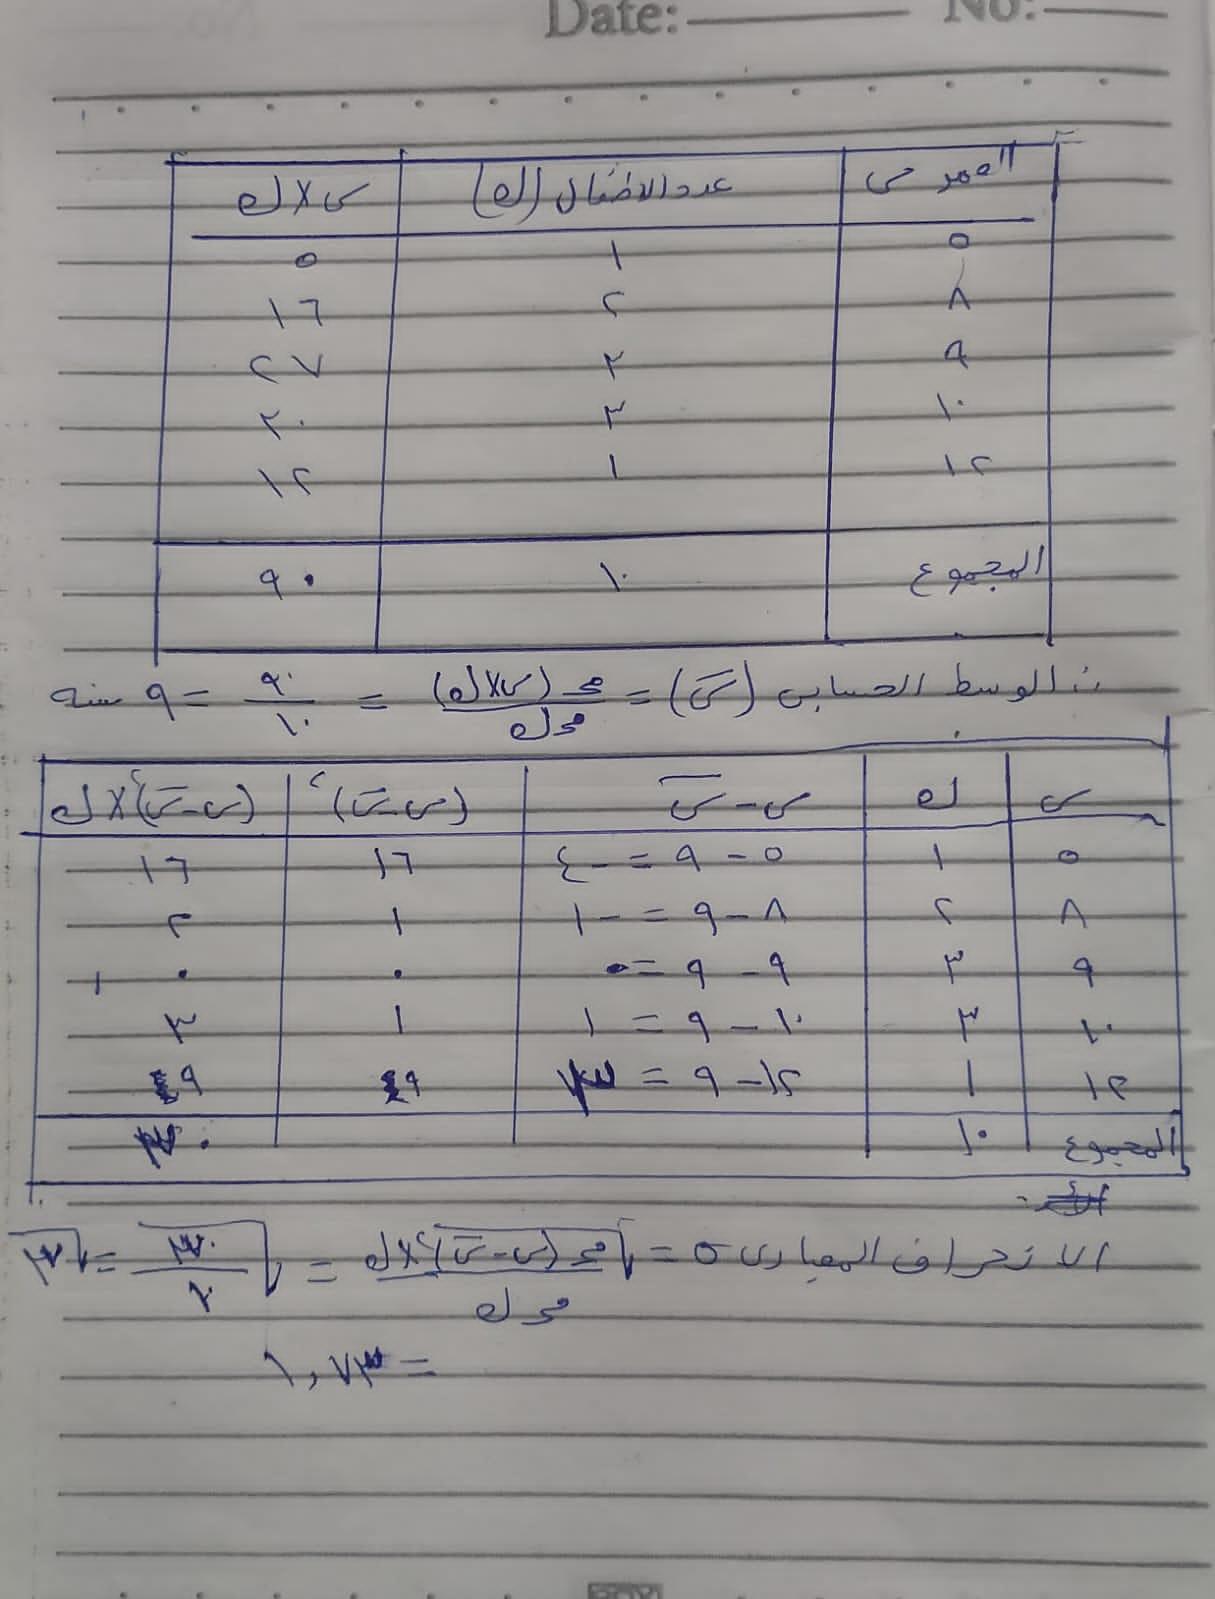 Date: No:
العمر س عدد الأطفال (ك) س × ك
٥ ١ ٥
٨ ٢ ١٦
٩ ٣ ٢٧
١٠ ٣ ٣٠
١٢ ١ ١٢
المجموع ١٠ ٩٠
∴ الوسط الحسابى (س̄) = مجـ (س×ك) / مجـ ك = ٩٠ / ١٠ = ٩ سنه
س ك س - س̄ (س-س̄)² (س-س̄)² × ك
٥ ١ ٥ - ٩ = -٤ ١٦ ١٦
٨ ٢ ٨ - ٩ = -١ ١ ٢
٩ ٣ ٩ - ٩ = ٠ ٠ ٠
١٠ ٣ ١٠ - ٩ = ١ ١ ٣
١٢ ١ ١٢ - ٩ = ٣ ٩ ٩
المجموع ١٠ ٣٠
الانحراف المعيارى σ = √(مجـ (س-س̄)² × ك / مجـ ك) = √(٣٠ / ) = √٣
= ١,٧٣